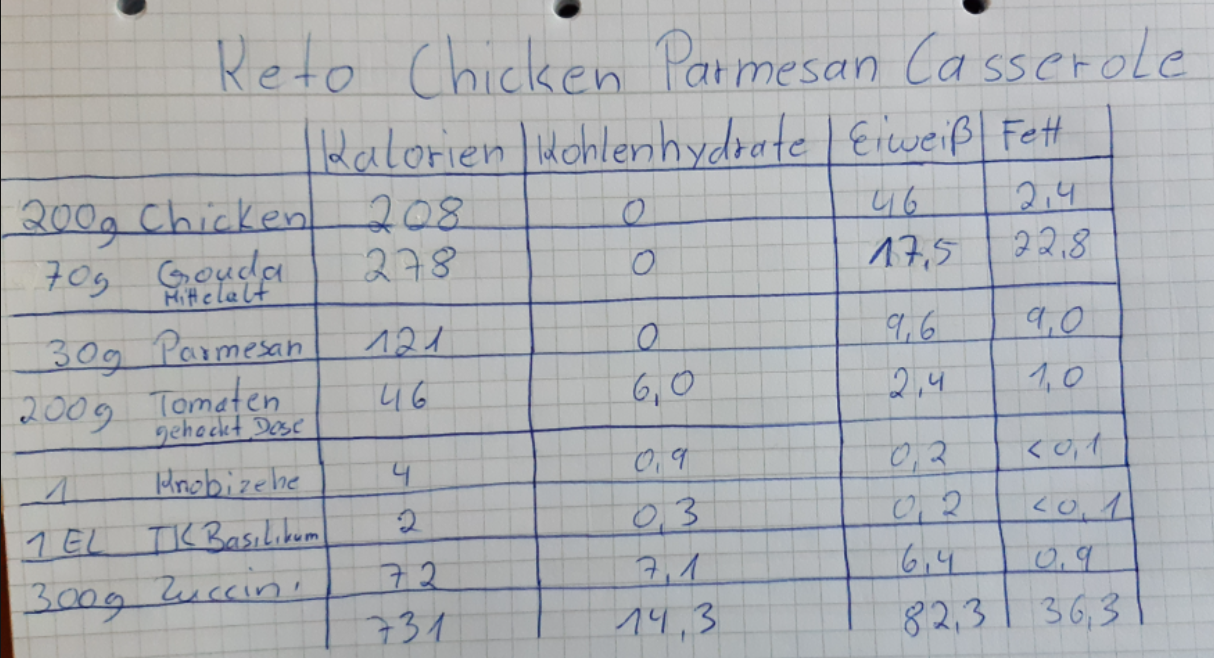 Keto Chicken Parmesan Casserole
Kalorien Kohlenhydrate Eiweiß Fett
200g Chicken 208 0 46 2,4
70g Gouda 278 0 17,5 22,8
Mittelalt
30g Parmesan 121 0 9,6 9,0
200g Tomaten 46 6,0 2,4 1,0
gehackt, Dose
1 Knobizehe 4 0,9 0,2 <0,1
1 EL TK Basilikum 2 0,3 0,2 <0,1
300g Zuccini 72 7,1 6,4 0,9
731 14,3 82,3 36,3